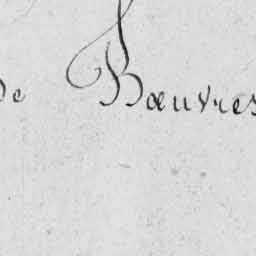 de Bœuvres